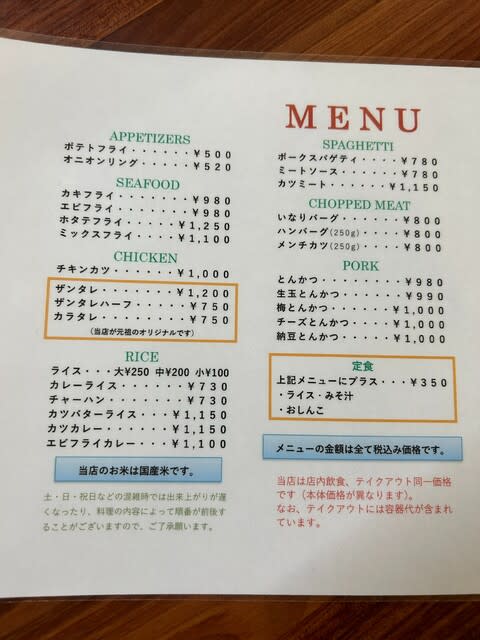 MENU
APPETIZERS
ポテトフライ・・・・・・・¥500
オニオンリング・・・・・・¥520
SEAFOOD
カキフライ・・・・・・・・¥980
エビフライ・・・・・・・・¥980
ホタテフライ・・・・・¥1,250
ミックスフライ・・・・¥1,100
CHICKEN
チキンカツ・・・・・・・¥1,000
ザンタレ・・・・・・・・¥1,200
ザンタレハーフ・・・・・¥750
カラタレ・・・・・・・・¥750
(当店が元祖のオリジナルです)
RICE
ライス・・・大¥250 中¥200 小¥100
カレーライス・・・・・・¥730
チャーハン・・・・・・・¥730
カツバターライス・・・¥1,150
カツカレー・・・・・・¥1,150
エビフライカレー・・・¥1,100
当店のお米は国産米です。
土・日・祝日などの混雑時では出来上がりが遅
くなったり、料理の内容によって順番が前後す
ることがございますので、ご了承願います。
SPAGHETTI
ポークスパゲティ・・・・¥780
ミートソース・・・・・・¥780
カツミート・・・・・・¥1,150
CHOPPED MEAT
いなりバーグ・・・・・・¥800
ハンバーグ(250g)・・・・¥800
メンチカツ(250g)・・・・¥800
PORK
とんかつ・・・・・・・・¥980
生玉とんかつ・・・・・・¥990
梅とんかつ・・・・・・¥1,000
チーズとんかつ・・・・¥1,000
納豆とんかつ・・・・・¥1,000
定食
上記メニューにプラス・・・¥350
・ライス・みそ汁
・おしんこ
メニューの金額は全て税込み価格です。
当店は店内飲食、テイクアウト同一価格
です(本体価格が異なります)。
なお、テイクアウトには容器代が含まれ
ています。